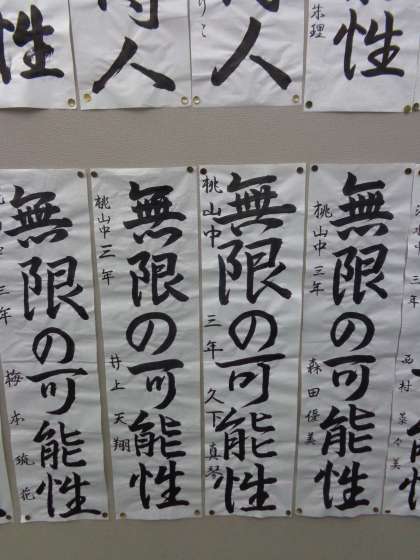 性
人
人
性
朱理
無限の可能性
三年
梅本筑花
無限の可能性
桃山中三年
井上天翔
無限の可能性
桃山中
三年
久下真琴
無限の可能性
桃山中三年
森田優美
三年
西村菜々美
能